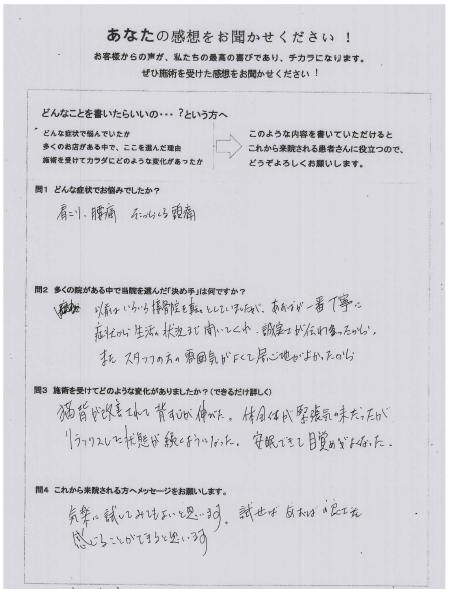 あなたの感想をお聞かせください！
お客様からの声が、私たちの最高の喜びであり、チカラになります。
ぜひ施術を受けた感想をお聞かせください！
どんなことを書いたらいいの・・・？という方へ
どんな症状で悩んでいたか
多くのお店がある中で、ここを選んだ理由
施術を受けてカラダにどのような変化があったか
このような内容を書いていただけると
これから来院される患者さんに役立つので、
どうぞよろしくお願いします。
問1 どんな症状でお悩みでしたか？
肩こり、腰痛 頭痛
問2 多くの院がある中で当院を選んだ「決め手」は何ですか？
以前はいろいろ接骨院を転々としていましたが、一番丁寧に
症状から生活の状況まで聞いてくれ、誠実さが伝わったから。
また スタッフの方の雰囲気がよくて居心地がよかったから
問3 施術を受けてどのような変化がありましたか？（できるだけ詳しく）
猫背が改善されて背すじが伸びた。体全体が緊張気味だったが
リラックスした状態が続くようになった。安眠できて目覚めがよくなった。
問4 これから来院される方へメッセージをお願いします。
気楽に試してみてもよいと思います。試せば 良さを
感じることができると思います